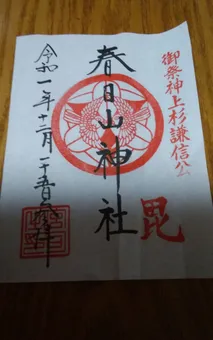 御祭神上杉謙信公
春日山神社
毘
令和一年十二月参拝